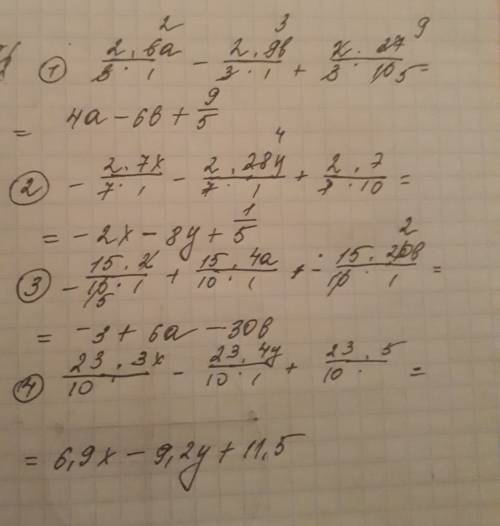 ① 2·6a/3·1 - 2·9b/3·1 + 2·27/3·10 =
2 3 9 5
= 4a - 6b + 9/5
② - 2·7x/7·1 - 2·28y/7·1 + 2·7/7·10 =
4
= -2x - 8y + 1/5
③ - 15·2/10·1 + 15·4a/10·1 - 15·20b/10·1 =
5 2
= -3 + 6a - 30b
④ 23·3x/10 - 23·4y/10·1 + 23·5/10· =
= 6,9x - 9,2y + 11,5